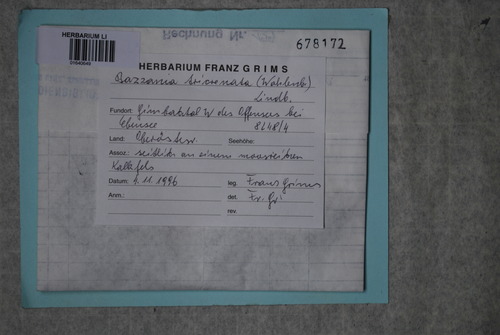 Rechnung Nr.
HERBARIUM LI
678172
HERBARIUM FRANZ GRIMS
Bazzania tricrenata (Wahlenb.)
Lindb.
Fundort: Gimbachtal W des Offensees bei
Ebensee 8248/4
Land: Oberösterr. Seehöhe:
Assoz.: seitlich an einem moosreichen
Kalkfels
Datum: .11.1996 leg. Franz Grims
Anm.: det. Fr. Gr.
rev.